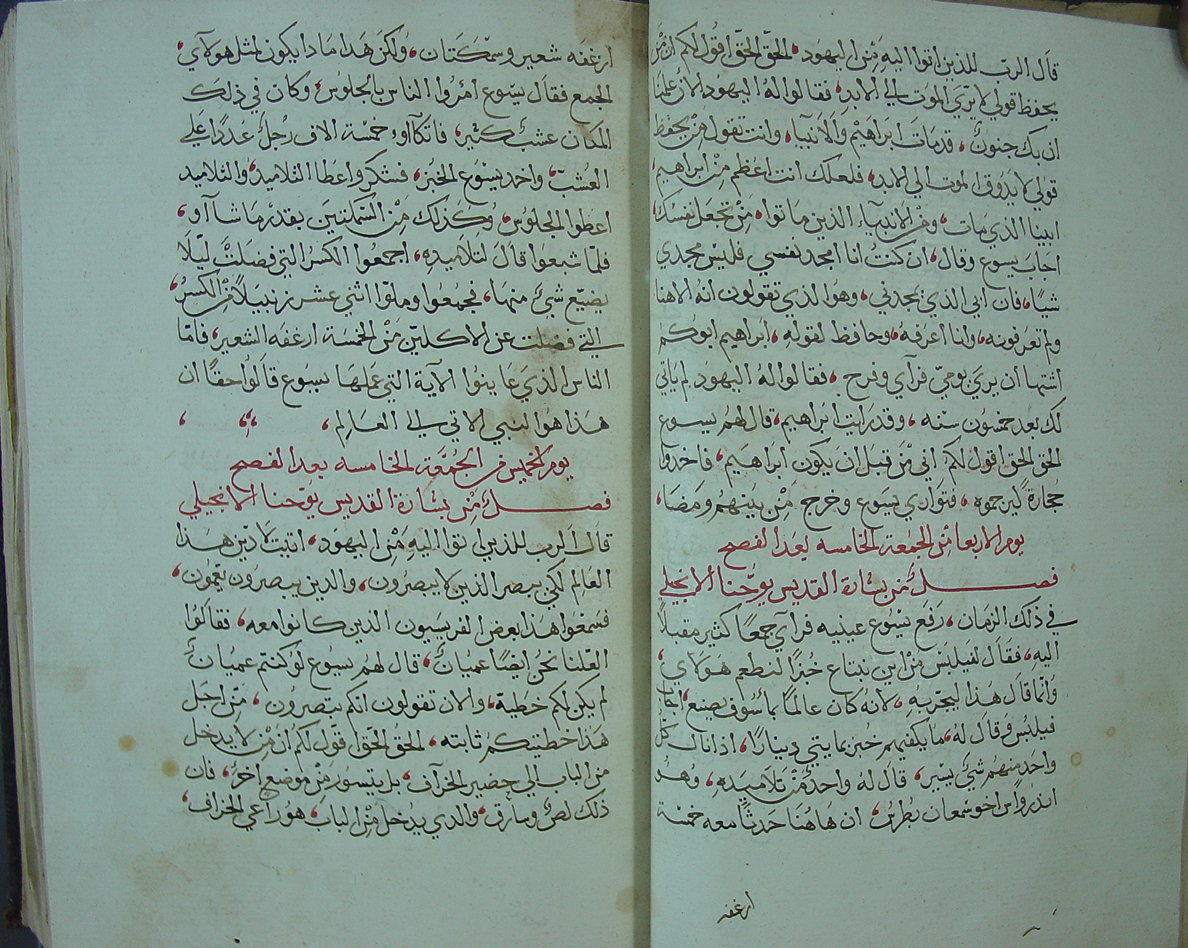 قال الرب للذين اتوا اليه من اليهود، الحق الحق اقول لكم ان من
يحفظ قولي لا يري الموت الي الابد، فقالوا له اليهود الان علمنا
ان بك جنون، قد مات ابراهيم والانبيا، وانت تقول من يحفظ
قولي لا يذوق الموت الي الابد، فلعلك انت اعظم من ابراهيم
ابينا الذي مات، ومن الانبياء الذين ماتوا، من تجعل نفسك
اجاب يسوع وقال، ان كنت انا امجد نفسي فليس مجدي
شيا، فان ابي الذي يمجدني، وهو الذي تقولون انه الاهنا
ولم تعرفونه، وانا اعرفه، وحافظ لقوله، ابراهيم ابوكم
اشتها ان يري يومي فرآي وفرح، فقالوا له اليهود لم ياتي
لك بعد خمسون سنه، وقد رايت ابراهيم، قال لهم يسوع
الحق الحق اقول لكم اني من قبل ان يكون ابراهيم، فاخدوا
حجارة ليرجموه، فتواري يسوع وخرج من بينهم ومضا،
يوم الاربعا من الجمعة الخامسه بعد الفصح
فصل من بشارة القديس يوحنا الانجيلي
في ذلك الزمان، رفع يسوع عينيه فرآي جمعا كثير مقبلا
اليه، فقال لفيلبس من اين نبتاع خبزا لنطعم هولاي،
وانما قال هذا ليجربه، لانه كان عالما بما سوف يصنع، اجاب
فيلبس وقال له، ما يكفيهم خبز بمايتي دينارا، اذا نال كل
واحد منهم شيئ يسير، قال له واحد من تلاميده، وهو
اندرواس اخو سمعان بطرس، ان هاهنا حدثا معه خمسة
ارغفه
ارغفه شعير وسمكتان، ولكن هدا مادا يكون لمثل هولآي
الجمع فقال يسوع امروا الناس بالجلوس، وكان في ذلك
المكان عشب كثير، فاتكاوا خمسة الاف رجل عددا علي
العشب، واخد يسوع الخبز، فشكر واعطا التلاميد، والتلاميد
اعطوا الجلوس، وكذلك من السمكتين بقدر ماشااو،
فلما شبعوا قال لتلاميده، اجمعوا الكسر التي فضلت ليلا
يضيع شيئ منها، فجمعوا وملوا اثني عشر زنبيلا من الكسر،
التي فضلت عن الاكلين من الخمسة ارغفه الشعير، فاما
الناس الذي عاينوا الآية التي عملها يسوع قالوا حقا ان
هذا هو النبي الاتي الي العالم،
يوم الخميس من الجمعة الخامسه بعد الفصح
فصل من بشارة القديس يوحنا الانجيلي
قال الرب للذين اتوا اليه من اليهود، اتيت لادين هذا
العالم لكي يبصر الذين لا يبصرون، والدين يبصرون يعمون،
فسمعوا هذا بعض الفريسيون الذين كانوا معه، فقالوا
العلنا نحن ايضا عميان، قال لهم يسوع لو كنتم عميان
لم يكن لكم خطية، والان تقولون انكم تبصرون، من اجل
هذا خطيتكم ثابته، الحق الحق اقول لكم ان من لا يدخل
من الباب الي حضير الخرآف، بل يتسور من موضع اخر، فان
ذلك لص وسارق، والدي يدخل من الباب، هو راعي الخراف،